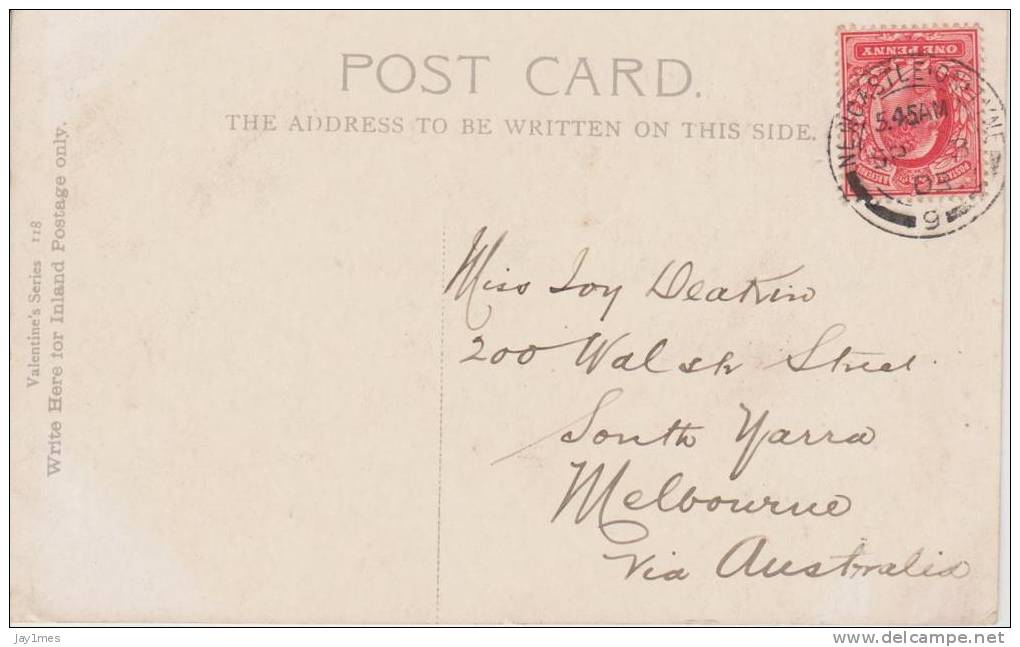 POST CARD.
THE ADDRESS TO BE WRITTEN ON THIS SIDE.
Valentine's Series 118
Write Here for Inland Postage only.
ONE PENNY
POSTAGE
NEWCASTLE
5.45AM
04
9
Miss Joy Deakin
200 Walsh Street
South Yarra
Melbourne
Via Australia
jay1mes
www.delcampe.net